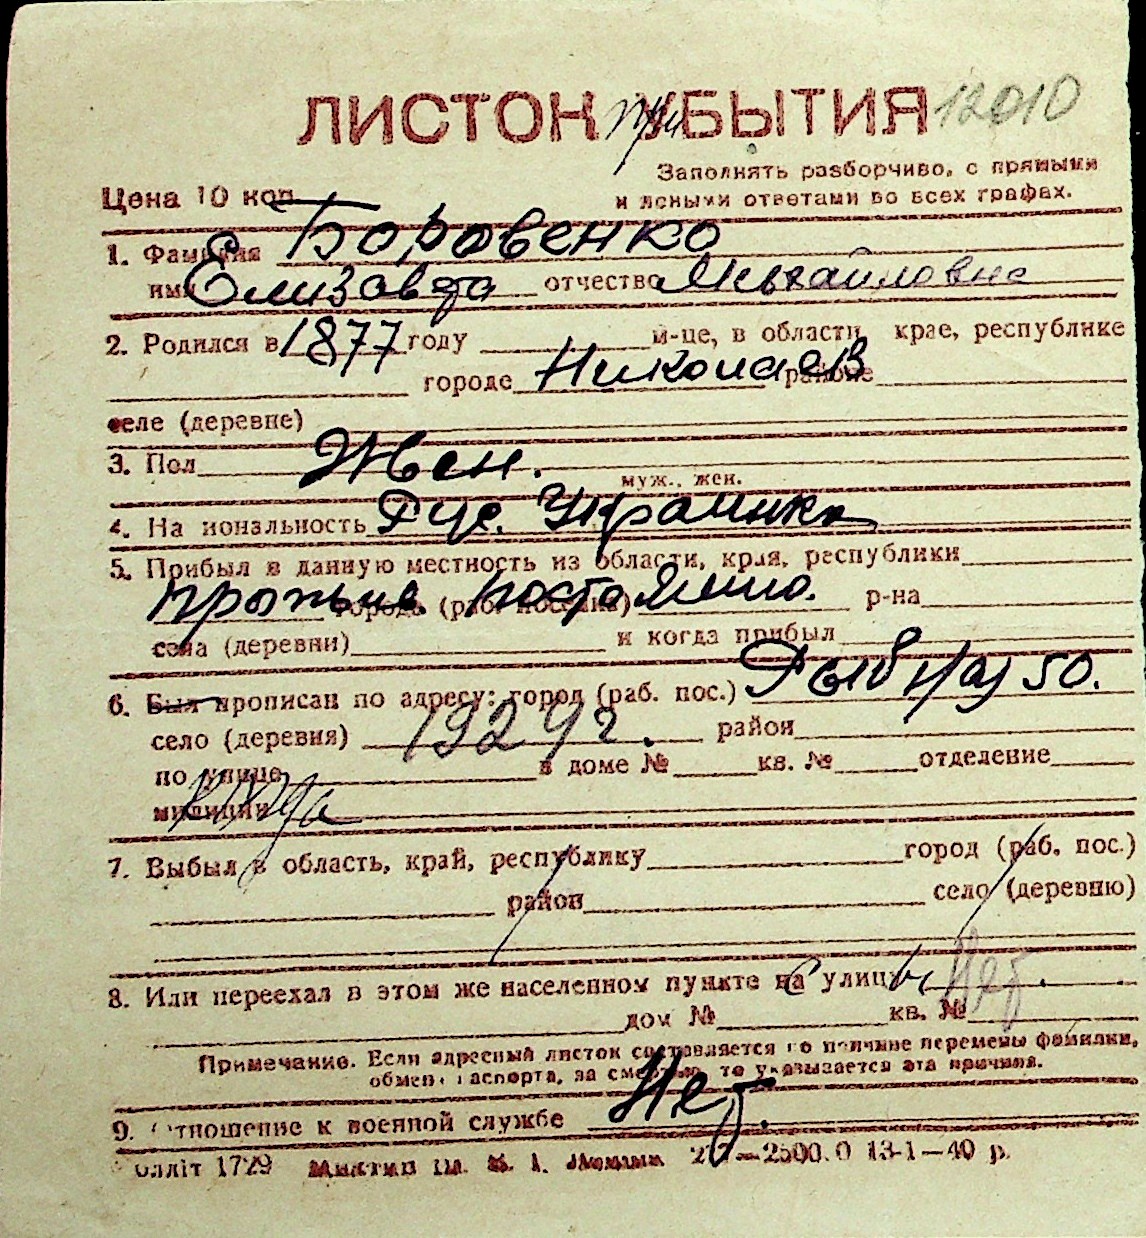 ЛИСТОК при УБЫТИЯ 12010
Заполнять разборчиво, с прямыми
Цена 10 коп. и ясными ответами во всех графах.
1. Фамилия Боровенко
имя Елизавта отчество Михайловна
2. Родился в 1877 году м-це, в области, крае, республике
городе Николаев районе
селе (деревне)
3. Пол Жен.
муж., жен.
4. На иональность Рус. Украинка
5. Прибыл в данную местность из области, края, республики
прожив. города (раб. поселка) постоянно. р-на
села (деревни) и когда прибыл
6. Был прописан по адресу: город (раб. пос.) Рыбная 50.
село (деревня) 1929 г. район
по улице в доме № кв. № отделение
милиции
7. Выбыл в область, край, республику город (раб. пос.)
район село (деревню)
8. Или переехал в этом же населенном пункте на улицы Нет.
дом № кв. №
Примечание. Если адресный листок составляется по причине перемены фамилии,
обмена паспорта, за смертью, то указывается эта причина.
9. Отношение к военной службе Нет.
облліт 1729 2500.0 13-1—40 р.